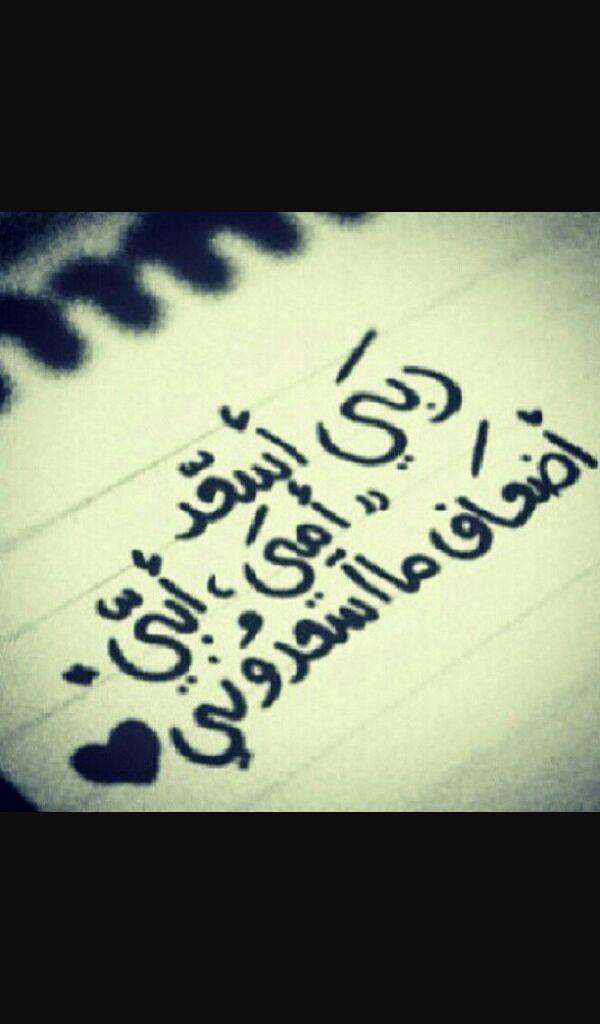 ربَي أسعّد
" أمَي ، أبيّ .
أضعَاف ما اسعدوُني ♥